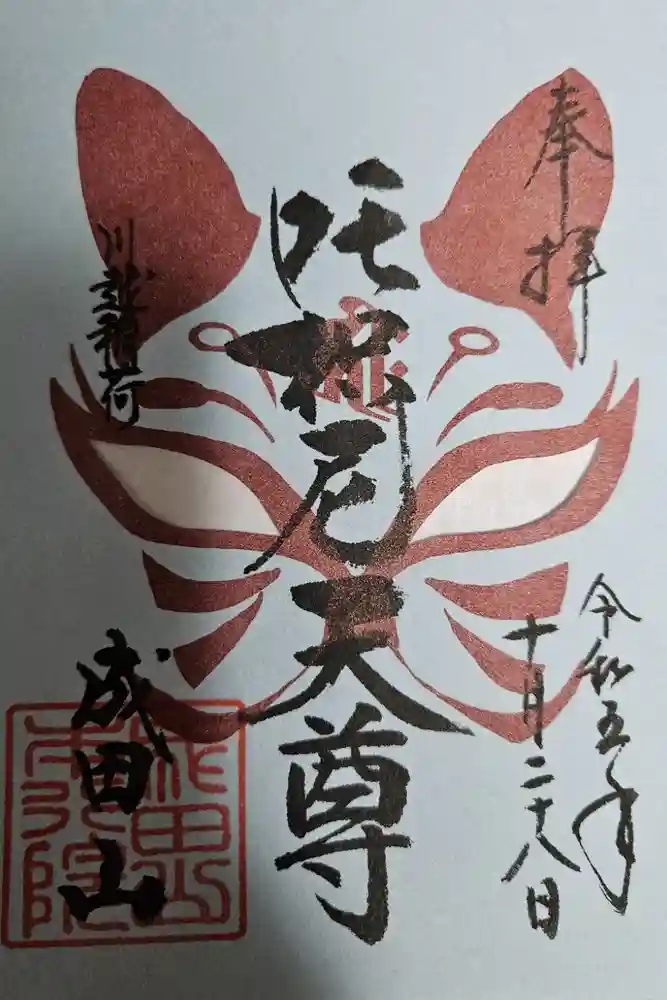 奉拝
令和五年
十月二十八日
吒枳尼天尊
川越稲荷
成田山
成田山
本行院